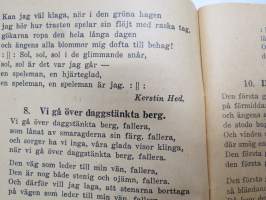 Kan jag väl klaga, när i den gröna hagen
jag hör hur trasten spelar sin flöjt med raska tag,
gökarna ropa den hela långa dagen
och ängens alla blommor mig dofta till behag!
:||: Sol, sol, sol i de glimmande snår,
sol, sol är det var jag går —
en speleman, en hjärteglad,
en speleman, en speleman är jag. :||:
Kerstin Hed.
8. Vi gå över daggstänkta berg.
Vi gå över daggstänkta berg, fallera,
som lånat av smaragderna sin färg, fallera,
och sorger ha vi inga, våra glada visor klinga,
när vi gå över daggstänkta berg, fallera.
Den väg som leder till min vän, fallera,
den är nog både stenig och ojämn, fallera
Och därför vill jag laga, att stenarna borttaga
på vägen som leder till min vän, fallera.
10. D
Den första g
på förmidda
Och den förs
de stodo bag
Och vinden
Den andra g